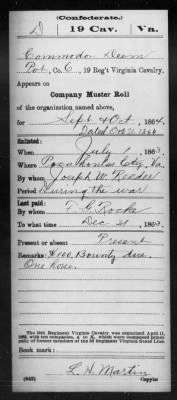 (Confederate.)
D 19 Cav. Va.
Commodore Deem
Pvt, Co. C, 19 Reg't Virginia Cavalry.
Appears on
Company Muster Roll
of the organization named above,
for Sept & Oct, 1864.
Dated Oct 31 1864
Enlisted:
When July 1, 1863.
Where Pocahontas Co., Va.
By whom Joseph W. Reeder
Period During the war
Last paid:
By whom F. G. Rocke
To what time Dec 31, 1863.
Present or absent Present
Remarks: $100. Bounty due.
One horse.
The 19th Regiment Virginia Cavalry was organized April 11,
1863, with ten companies, A to K, which were composed princi-
pally of former members of the 3d Regiment Virginia State Line.
Book mark:
L. H. Martin
(642) Copyist.